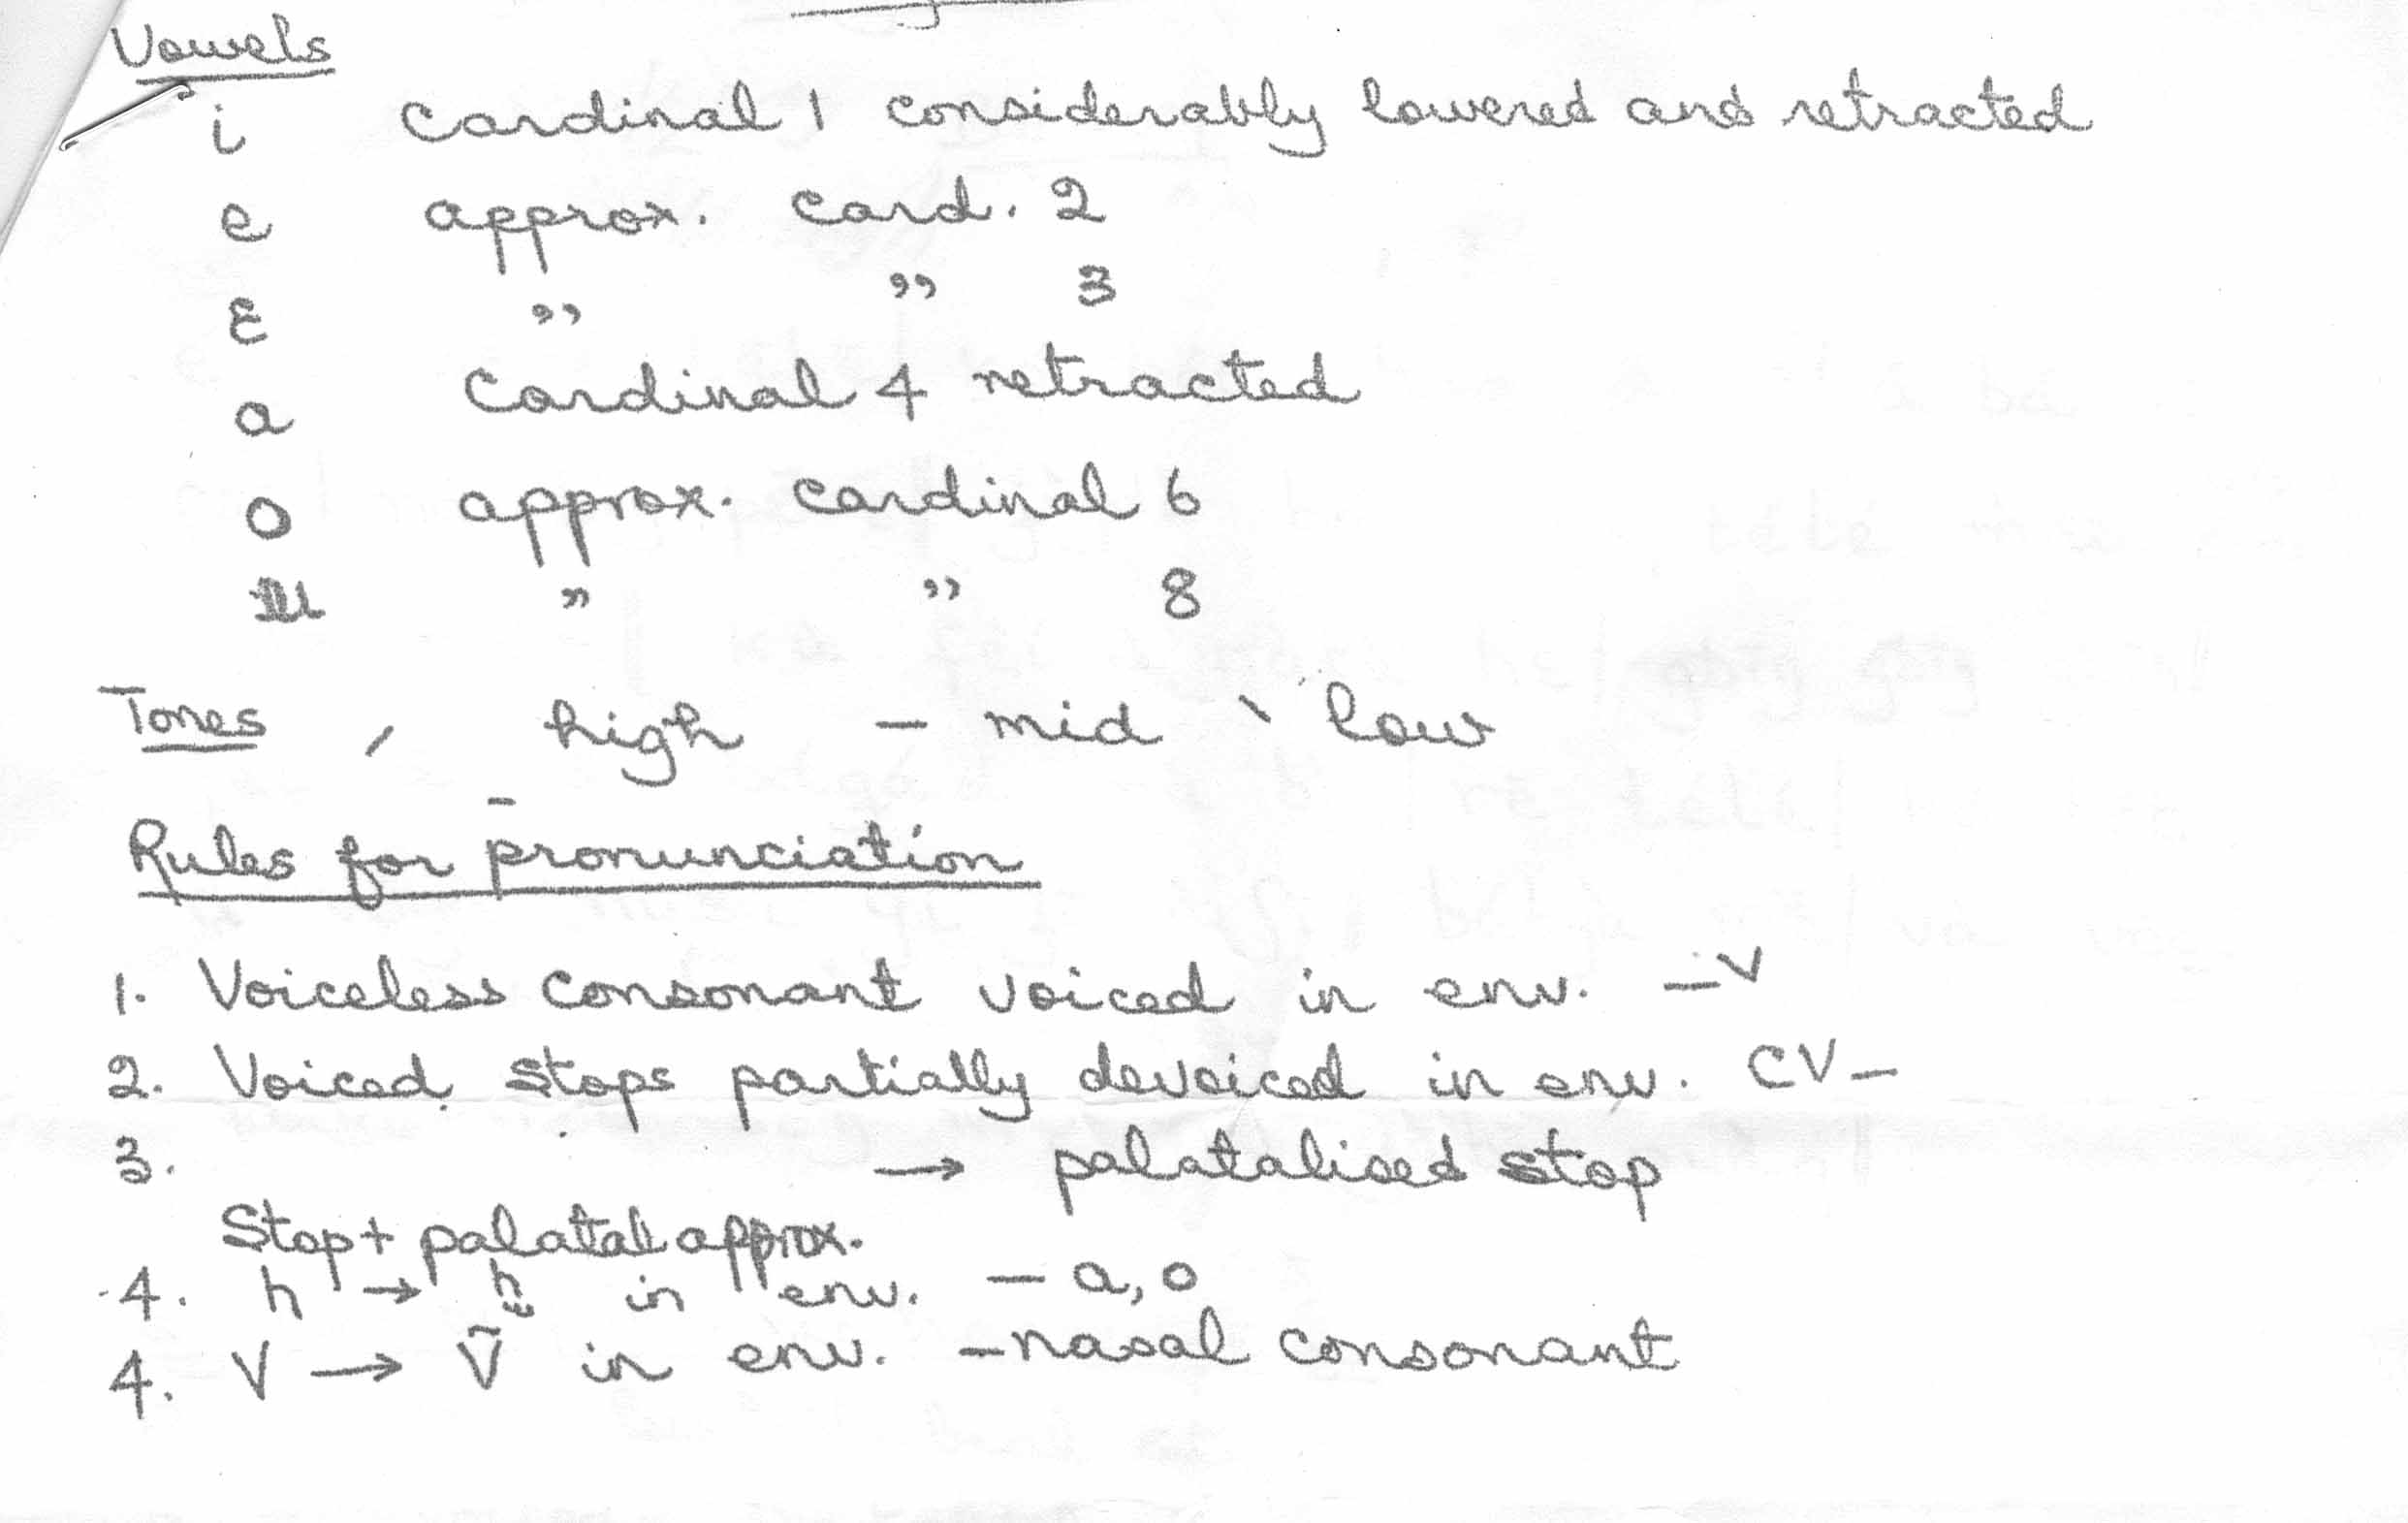 Vowels
i cardinal 1 considerably lowered and retracted
e approx. card. 2
ɛ ,, ,, 3
a Cardinal 4 retracted
o approx. cardinal 6
u ,, ,, 8
Tones ˊ high – mid ˋ low
Rules for pronunciation
1. Voiceless consonant voiced in env. –V
2. Voiced stops partially devoiced in env. CV–
3. → palatalised stop
Stop + palatal approx.
4. h → in env. – a, o
4. V → Ṽ in env. – nasal consonant